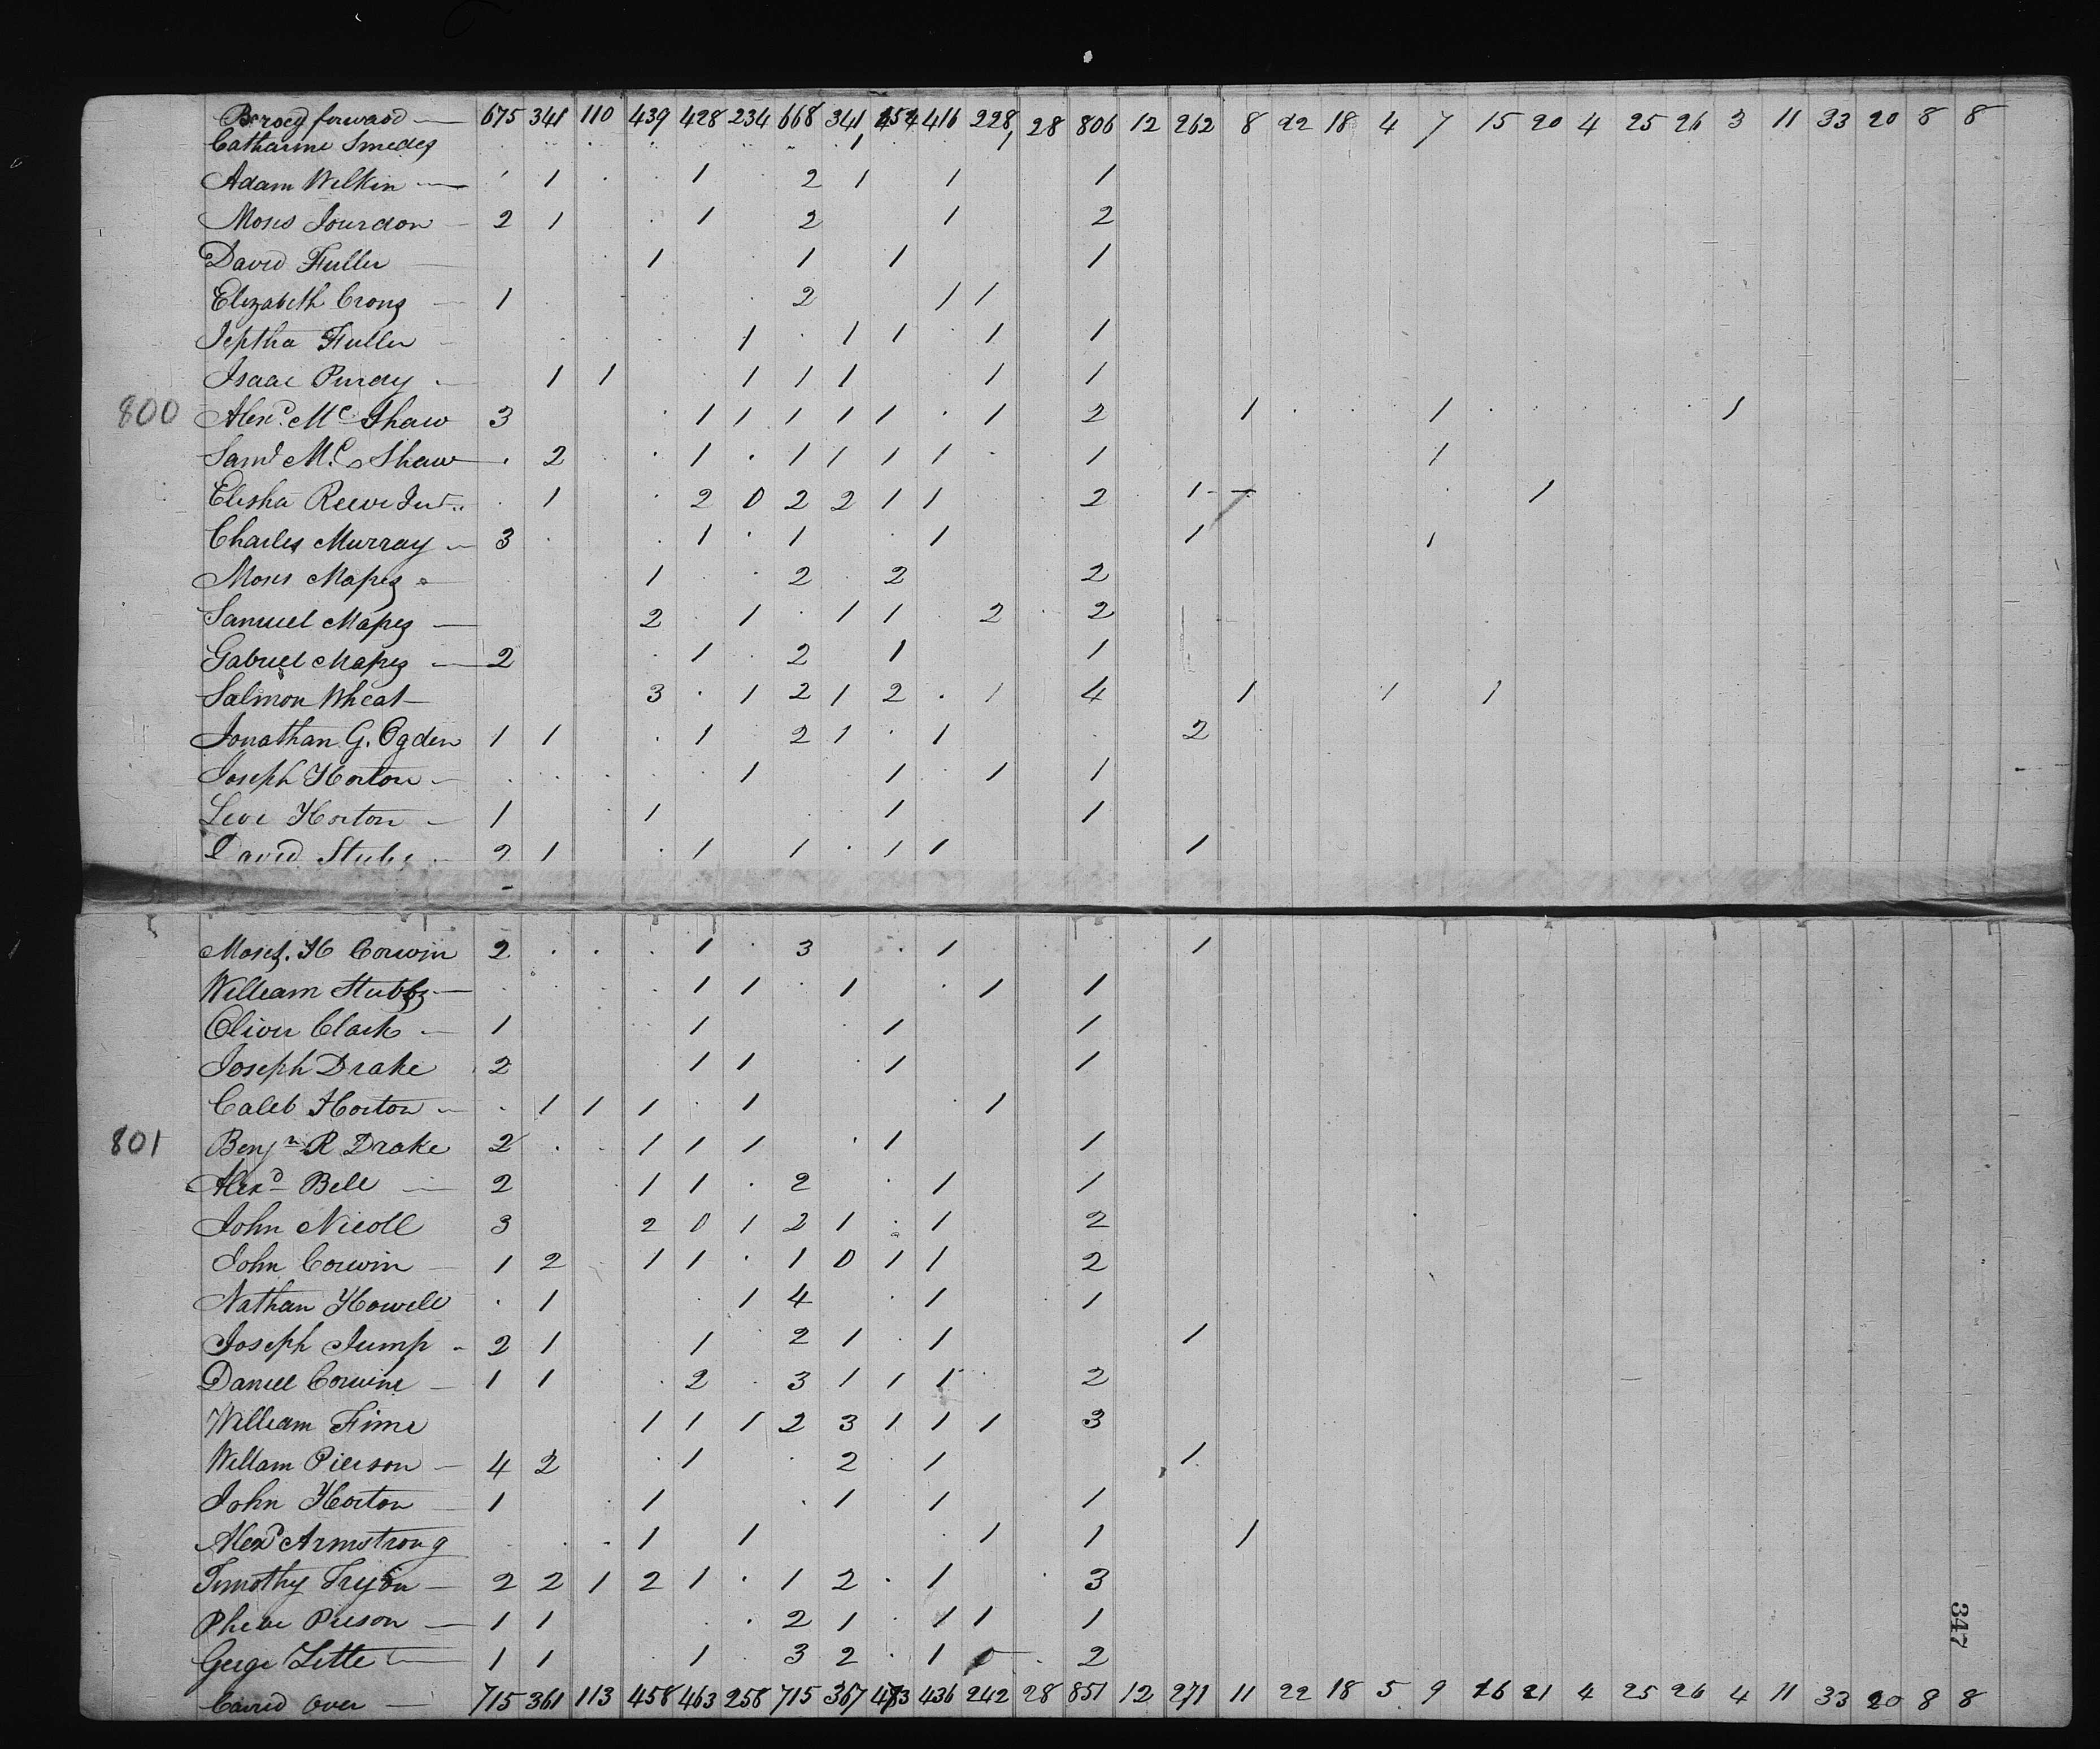 Broug forward — 675 341 110 439 428 234 668 341 454 416 228 28 806 12 262 8 22 18 4 7 15 20 4 25 26 3 11 33 20 8 8
Catharine Smedes 1 1
Adam Wilkin — 1 1 2 1 1 1
Moses Jourdon — 2 1 1 2 1 2
David Fuller — 1 1 1 1
Elizabeth Crons — 1 2 1 1
Jeptha Fuller - 1 1 1 1 1
Isaac Purdy - 1 1 1 1 1 1 1
800 Alexd. Mc Shaw 3 1 1 1 1 1 1 2 1 1 1
Saml Mc Shaw — 2 1 1 1 1 1 1 1
Elisha Reeve Jur.. 1 2 0 2 2 1 1 2 1 1
Charles Murray — 3 1 1 1 1 1
Moses Mapes - 1 2 2 2
Samuel Mapes — 2 1 1 1 2 2
Gabriel Mapes — 2 1 2 1 1
Salmon Wheat — 3 1 2 1 2 1 4 1 1 1
Jonathan G. Ogden 1 1 1 2 1 1 2
Joseph Horton - 1 1 1 1
Levi Horton - 1 1 1 1
David 2 1 1 1 1 1 1
Moses. H Corwin 2 1 3 1 1
William Stubbs — 1 1 1 1 1
Oliver Clark - 1 1 1 1
Joseph Drake 2 1 1 1 1
Caleb Horton - 1 1 1 1 1
801 Benjn R Drake 2 1 1 1 1 1
Alexd Bell - 2 1 1 2 1 1
John Nicoll 3 2 0 1 2 1 1 2
John Corwin - 1 2 1 1 1 0 1 1 2
Nathan Howell 1 1 4 1 1
Joseph Jump - 2 1 1 2 1 1 1
Daniel Corwine - 1 1 2 3 1 1 1 2
William Fime 1 1 1 2 3 1 1 1 3
Willam Pierson - 4 2 1 2 1 1
John Horton - 1 1 1 1 1
Alexd Armstrong 1 1 1 1 1
Timothy Tryon — 2 2 1 2 1 1 2 1 3
Phebe Pieson — 1 1 2 1 1 1 1
George Little — 1 1 1 3 2 1 0 2
Carred Over — 715 361 113 458 463 258 715 367 473 436 242 28 851 12 271 11 22 18 5 9 16 21 4 25 26 4 11 33 20 8 8
347